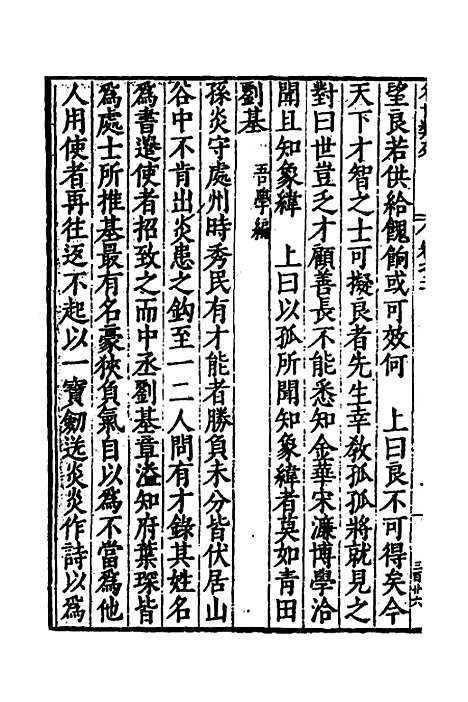 望良若供給餽餉或可效何　上曰良不可得矣今
天下才智之士可擬良者先生幸敎孤孤將就見之
對曰世豈乏才顧善長不能悉知金華宋濂博學洽
聞且知象緯　上曰以孤所聞知象緯者莫如青田
劉基　吾學編
孫炎守處州時秀民有才能者勝負未分皆伏居山
谷中不肯出炎患之鈎至一二人問有才錄其姓名
爲書遣使者招致之而中丞劉基章溢知府葉琛皆
爲處士所推基最有名豪俠負氣自以爲不當爲他
人用使者再往返不起以一寶劒送炎炎作詩以爲
三百廿六